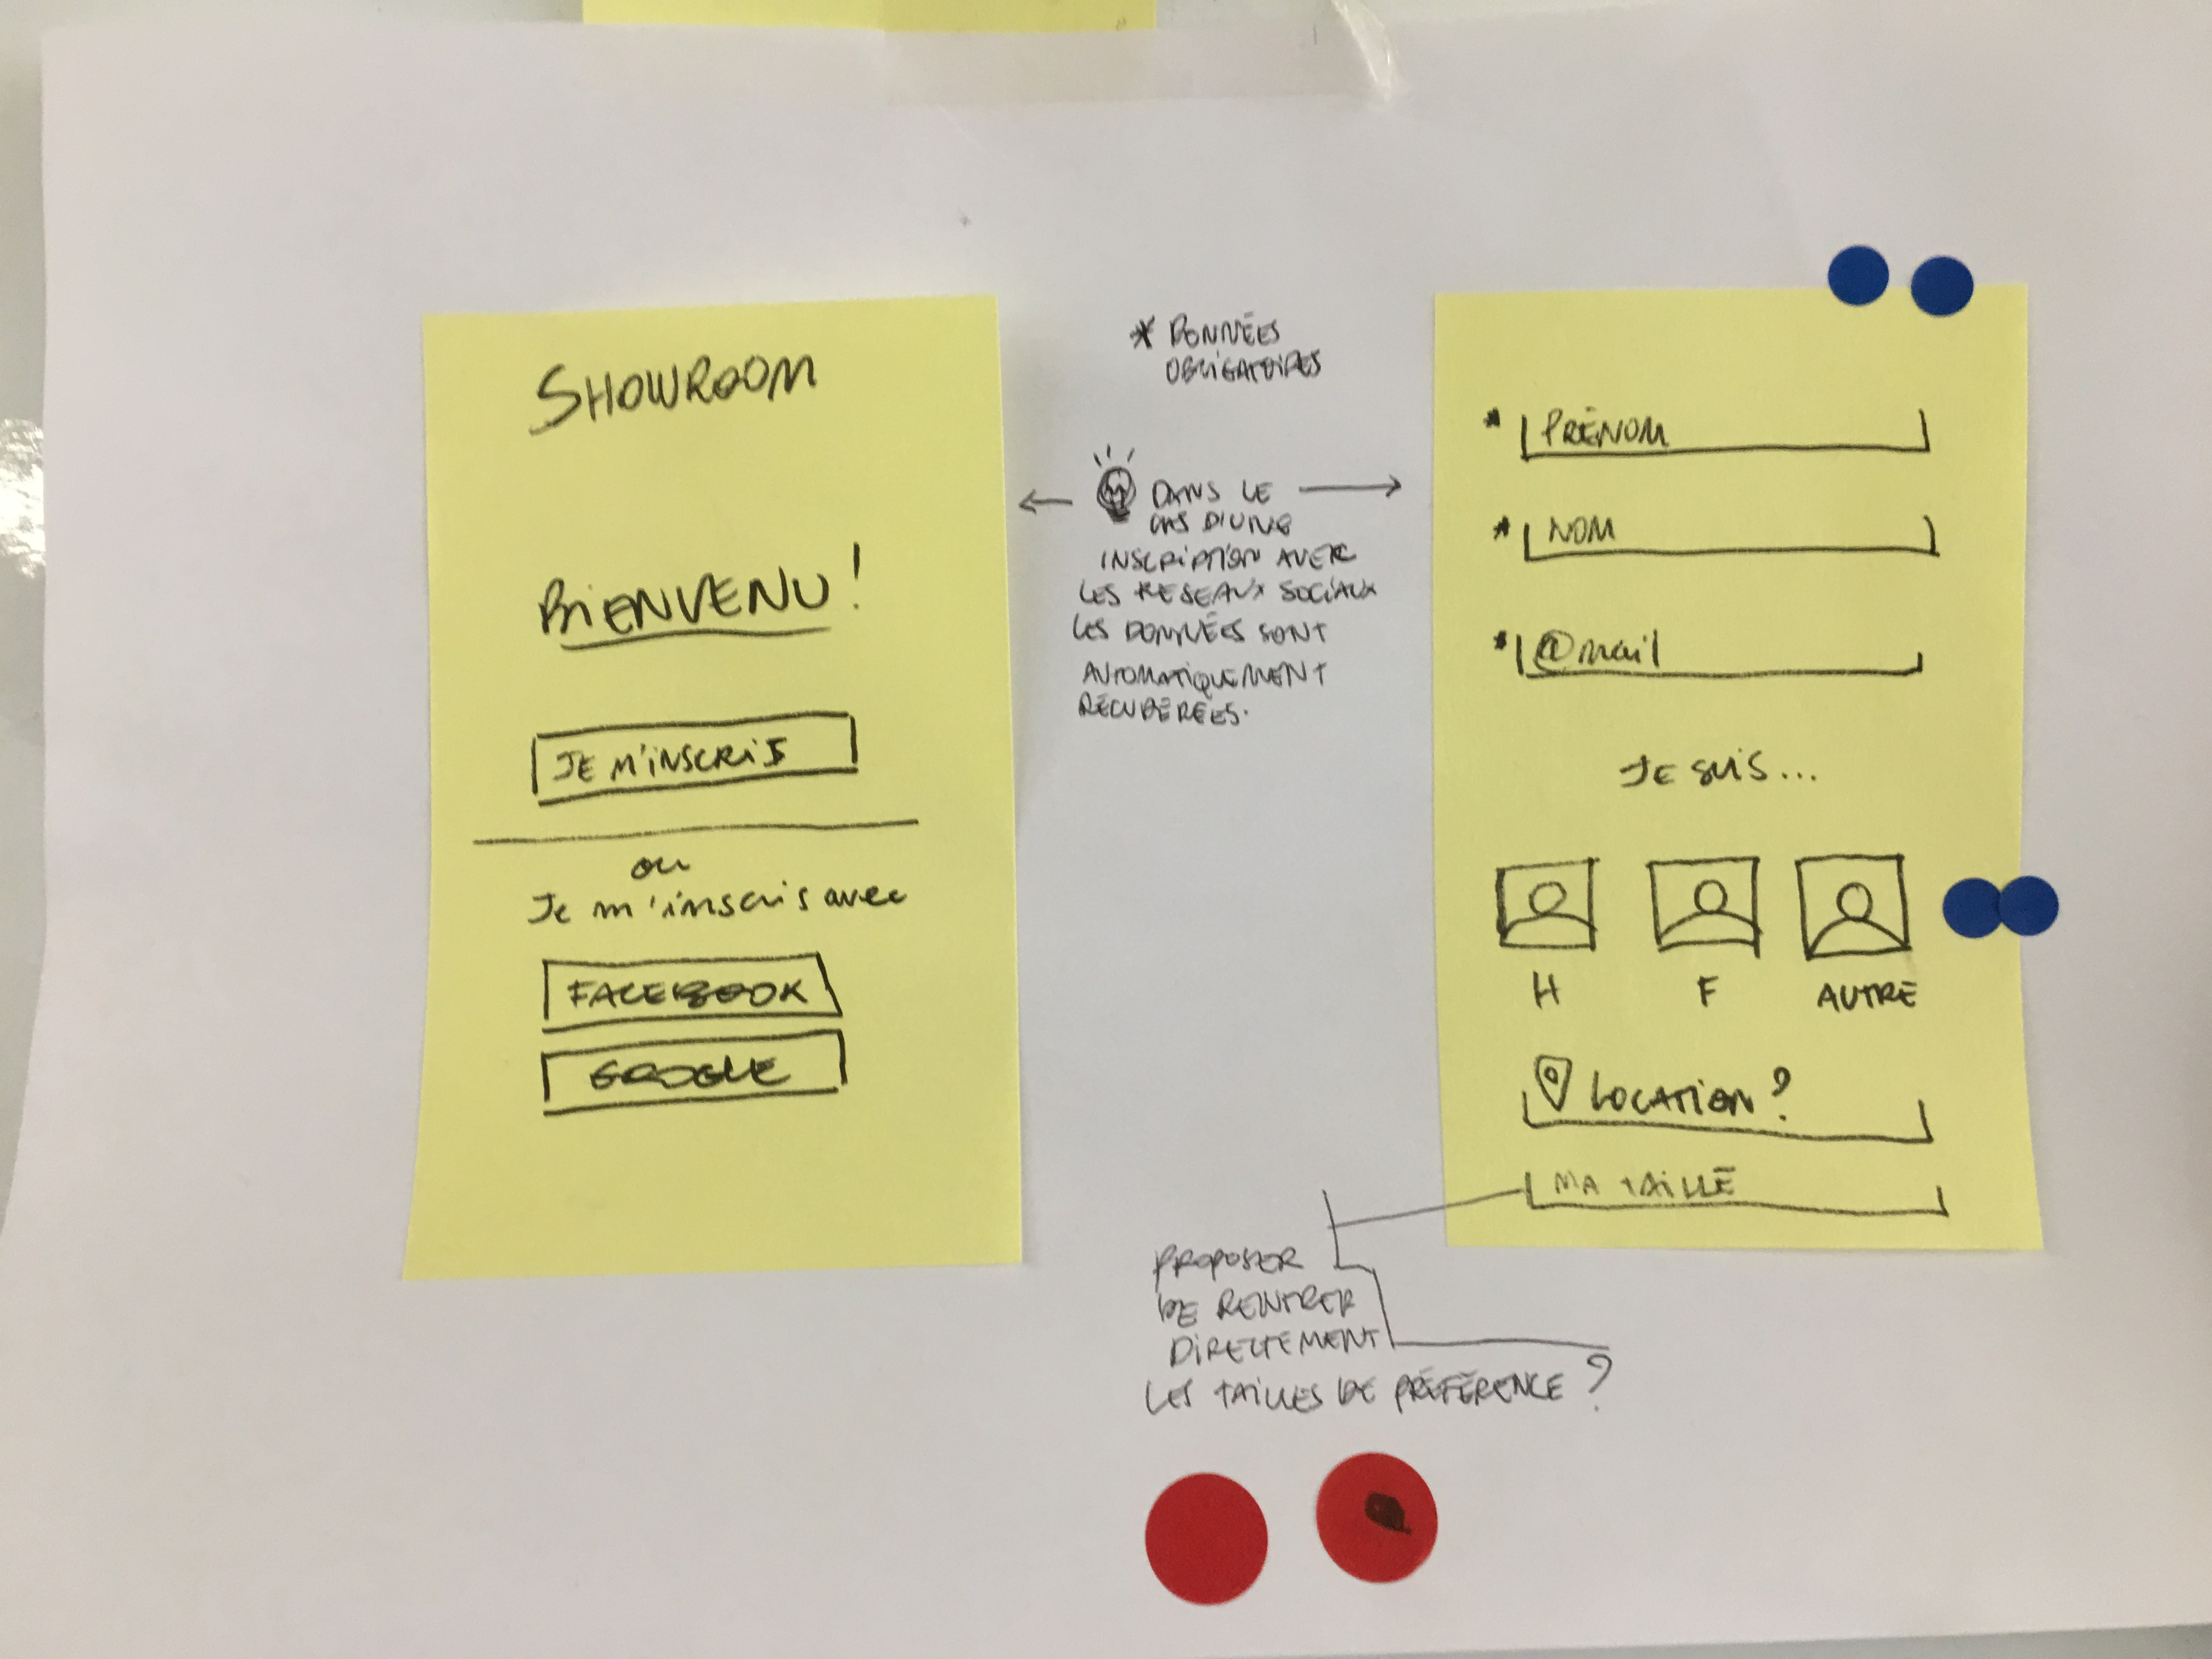 SHOWROOM
BIENVENU !
JE M'INSCRIS
ou
Je m'inscris avec
FACEBOOK
GOOGLE
* DONNÉES
OBLIGATOIRES
DANS LE
CAS D'UNE
INSCRIPTION AVEC
LES RESEAUX SOCIAUX
LES DONNÉES SONT
AUTOMATIQUEMENT
RÉCUPÉRÉES.
* PRÉNOM
* NOM
* @mail
JE SUIS...
H F AUTRE
LOCATION ?
MA TAILLE
PROPOSER
DE RENTRER
DIRECTEMENT
LES TAILLES DE PRÉFÉRENCE ?